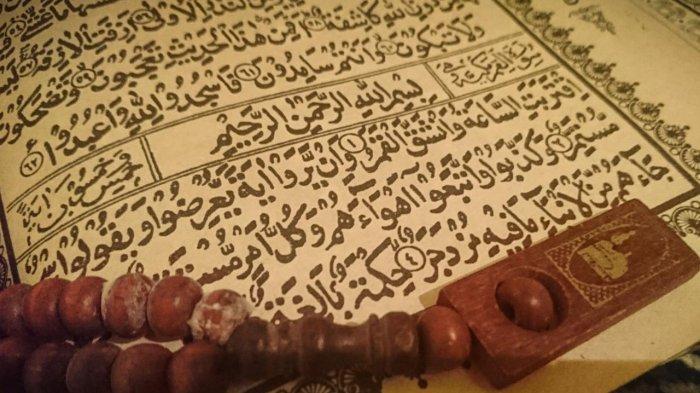 دُونِ اللّٰهِ كَاشِفَةٌ ۝٥٨ اَفَمِنْ هٰذَا الْحَدِيْثِ تَعْجَبُوْنَ ۝٥٩ وَتَضْحَكُوْنَ
وَلَا تَبْكُوْنَ ۝٦٠ وَاَنْتُمْ سَامِدُوْنَ ۝٦١ فَاسْجُدُوْا لِلّٰهِ وَاعْبُدُوْا ۝٦٢
بِسْمِ اللّٰهِ الرَّحْمٰنِ الرَّحِيْمِ
اِقْتَرَبَتِ السَّاعَةُ وَانْشَقَّ الْقَمَرُ ۝١ وَاِنْ يَّرَوْا اٰيَةً يُّعْرِضُوْا وَيَقُوْلُوْا
مُّسْتَمِرٌّ ۝٢ وَكَذَّبُوْا وَاتَّبَعُوْٓا اَهْوَآءَهُمْ وَكُلُّ اَمْرٍ مُّسْتَقِرٌّ
جَآءَهُمْ مِّنَ الْاَنْۢبَآءِ مَا فِيْهِ مُزْدَجَرٌ ۝٤ حِكْمَةٌ ۢ بَالِغَةٌ